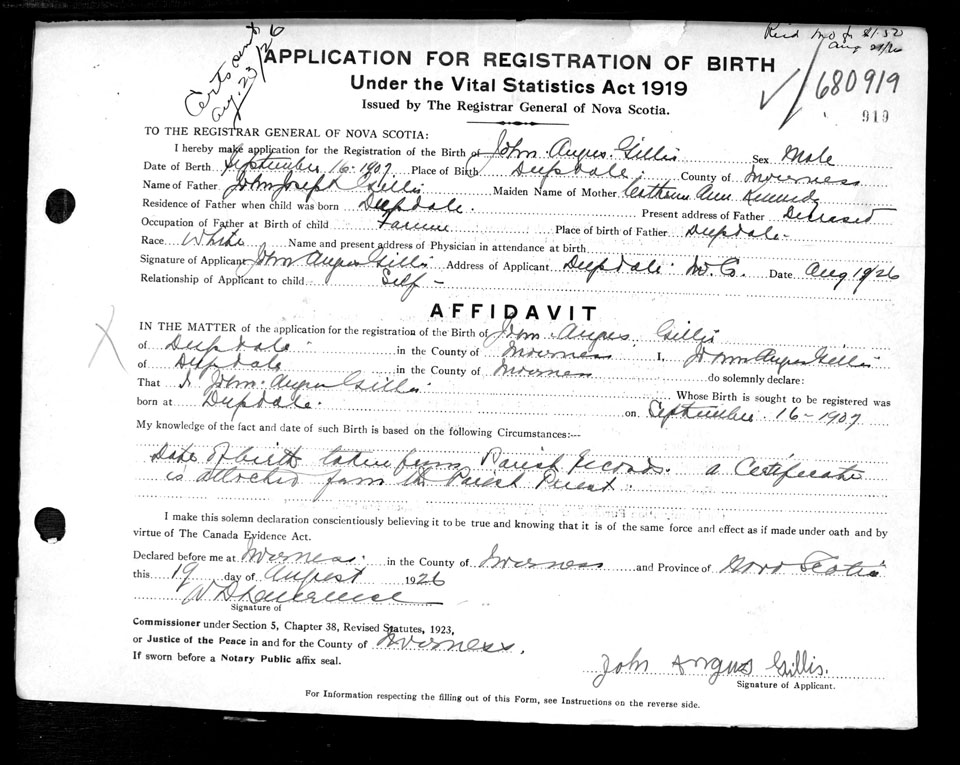 Certs sent
Aug. 23/26
Recd M.O. $1.50
Aug 21/26
APPLICATION FOR REGISTRATION OF BIRTH
Under the Vital Statistics Act 1919
Issued by The Registrar General of Nova Scotia.
680919
919
TO THE REGISTRAR GENERAL OF NOVA SCOTIA:
I hereby make application for the Registration of the Birth of John Angus Gillis Sex Male
Date of Birth September 16-1907 Place of Birth Deepdale. County of Inverness
Name of Father John Joseph Gillis Maiden Name of Mother Catherine Ann Kennedy
Residence of Father when child was born Deepdale. Present address of Father Deceased
Occupation of Father at Birth of child Farmer Place of birth of Father Deepdale-
Race White Name and present address of Physician in attendance at birth
Signature of Applicant John Angus Gillis Address of Applicant Deepdale Date Aug 19/26
Relationship of Applicant to child Self-
AFFIDAVIT
IN THE MATTER of the application for the registration of the Birth of John Angus Gillis
of Deepdale in the County of Inverness I, John Angus Gillis
of Deepdale in the County of Inverness do solemnly declare:
That I John Angus Gillis Whose Birth is sought to be registered was
born at Deepdale. on September 16-1907
My knowledge of the fact and date of such Birth is based on the following Circumstances:--
Date of birth taken from Parish records. a Certificate
is attached from the Parish Priest.
I make this solemn declaration conscientiously believing it to be true and knowing that it is of the same force and effect as if made under oath and by
virtue of The Canada Evidence Act.
Declared before me at Inverness. in the County of Inverness and Province of Nova Scotia
this 19 day of August 1926
Signature of
Commissioner under Section 5, Chapter 38, Revised Statutes, 1923,
or Justice of the Peace in and for the County of Inverness.
If sworn before a Notary Public affix seal.
John Angus Gillis.
Signature of Applicant.
For Information respecting the filling out of this Form, see Instructions on the reverse side.